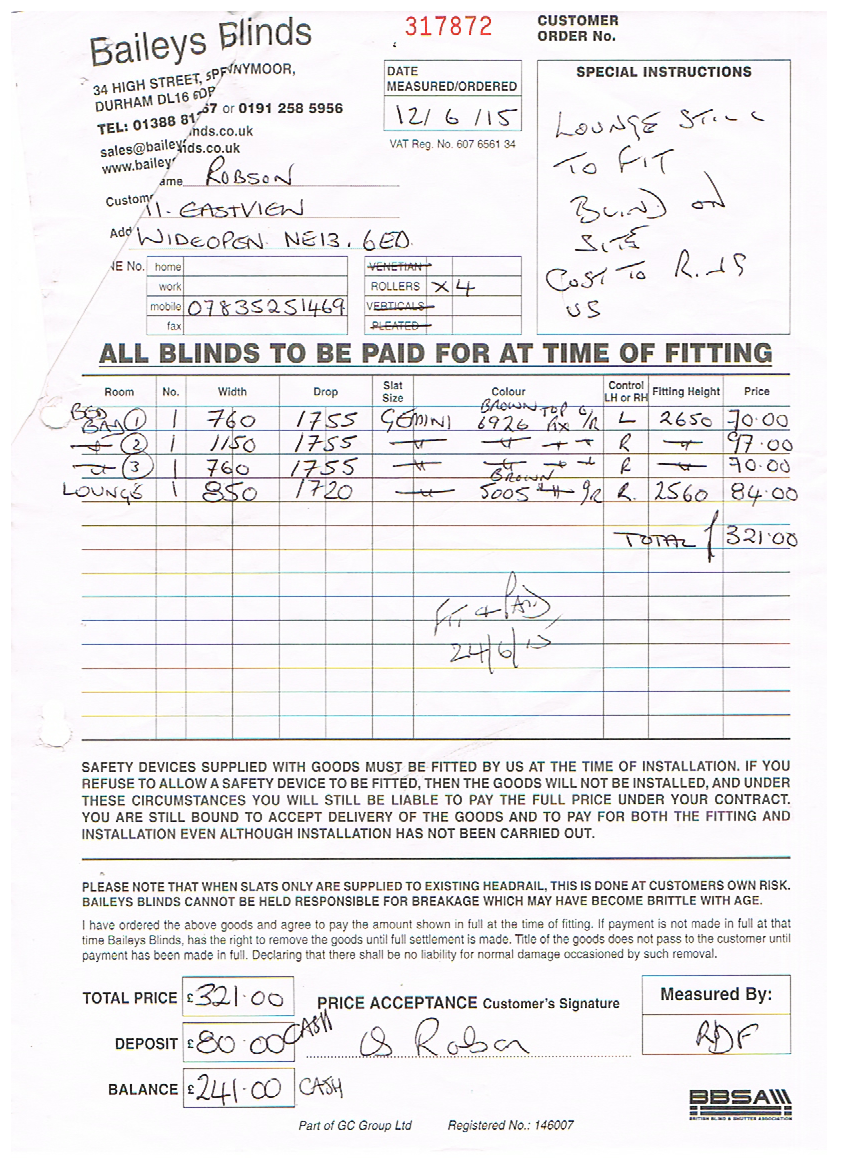 Baileys Blinds
317872
CUSTOMER
ORDER No.
34 HIGH STREET, SPENNYMOOR,
DURHAM DL16 6DP
TEL: 01388 81 67 or 0191 258 5956
sales@bailey nds.co.uk
www.bailey ds.co.uk
DATE
MEASURED/ORDERED
12/6/15
VAT Reg. No. 607 6561 34
SPECIAL INSTRUCTIONS
LOUNGE STILL
TO FIT
BLIND ON
SITE
COST TO
US
ame ROBSON
Custom
11. EASTVIEW
Add WIDEOPEN. NE13. 6ED.
NE No. home
work
mobile 07835251469
fax
VENETIAN
ROLLERS X4
VERTICALS
PLEATED
ALL BLINDS TO BE PAID FOR AT TIME OF FITTING
Room No. Width Drop Slat Size Colour Control LH or RH Fitting Height Price
BED 1 1 760 1755 GEMINI BROWN TOP 6926 L 2650 70.00
" 2 1 1150 1755 " " " " R " 97.00
" 3 1 760 1755 " " " " R " 70.00
LOUNGE 1 850 1720 " BROWN 5005 " R. 2560 84.00
TOTAL £321.00
FIT & PAID
24/6/15
SAFETY DEVICES SUPPLIED WITH GOODS MUST BE FITTED BY US AT THE TIME OF INSTALLATION. IF YOU
REFUSE TO ALLOW A SAFETY DEVICE TO BE FITTED, THEN THE GOODS WILL NOT BE INSTALLED, AND UNDER
THESE CIRCUMSTANCES YOU WILL STILL BE LIABLE TO PAY THE FULL PRICE UNDER YOUR CONTRACT.
YOU ARE STILL BOUND TO ACCEPT DELIVERY OF THE GOODS AND TO PAY FOR BOTH THE FITTING AND
INSTALLATION EVEN ALTHOUGH INSTALLATION HAS NOT BEEN CARRIED OUT.
PLEASE NOTE THAT WHEN SLATS ONLY ARE SUPPLIED TO EXISTING HEADRAIL, THIS IS DONE AT CUSTOMERS OWN RISK.
BAILEYS BLINDS CANNOT BE HELD RESPONSIBLE FOR BREAKAGE WHICH MAY HAVE BECOME BRITTLE WITH AGE.
I have ordered the above goods and agree to pay the amount shown in full at the time of fitting. If payment is not made in full at that
time Baileys Blinds, has the right to remove the goods until full settlement is made. Title of the goods does not pass to the customer until
payment has been made in full. Declaring that there shall be no liability for normal damage occasioned by such removal.
TOTAL PRICE £321.00
PRICE ACCEPTANCE Customer's Signature
Measured By:
DEPOSIT £80.00 CASH
Robson
RDF
BALANCE £241.00 CASH
BBSA
BRITISH BLIND & SHUTTER ASSOCIATION
Part of GC Group Ltd Registered No.: 146007